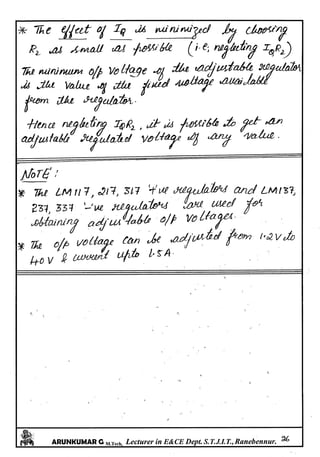 * The effect of IQ is minimized by choosing
R2 as small as possible (i.e, neglecting IQR2)
The minimum o/p voltage of the adjustable regulator
is the value of the fixed voltage available
from the regulator.
Hence neglecting IQR2, it is possible to get an
adjustable regulated voltage of any value.
NOTE:
* The LM117, 217, 317 +ve regulators and LM137,
237, 337 -ve regulators are used for
obtaining adjustable o/p voltages.
* The o/p voltage can be adjusted from 1.2V to
40V & current upto 1.5A.
ARUNKUMAR G M.Tech, Lecturer in E&CE Dept. S.T.J.I.T., Ranebennur. 26